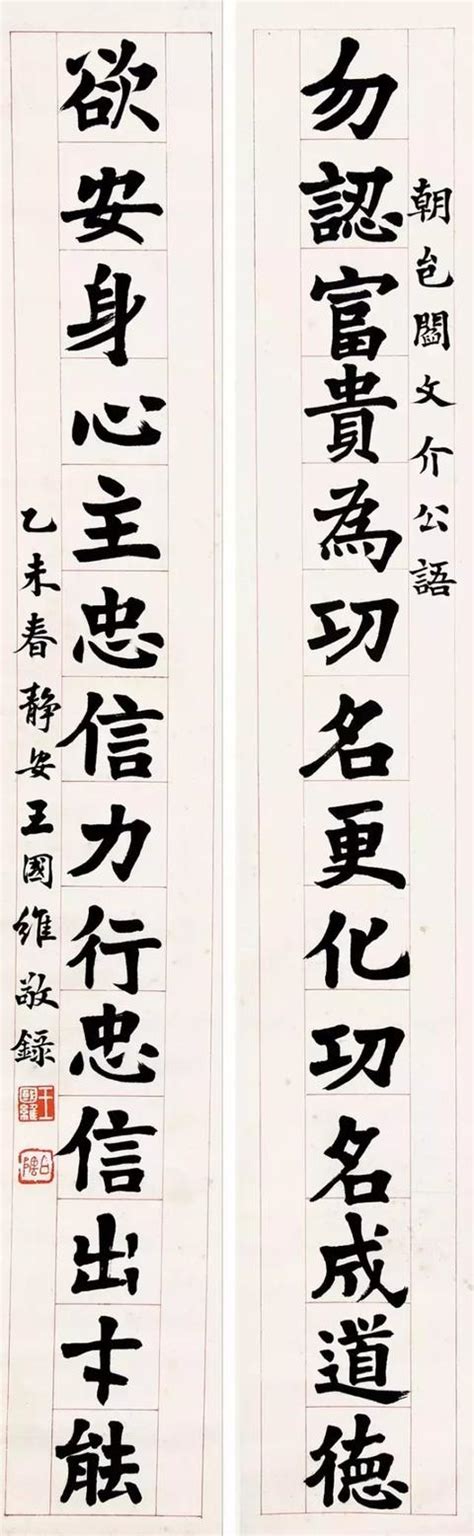 朝邑閻文介公語
勿認富貴為功名更化功名成道德
欲安身心主忠信力行忠信出才能
乙未春靜安王國維敬錄
王國維